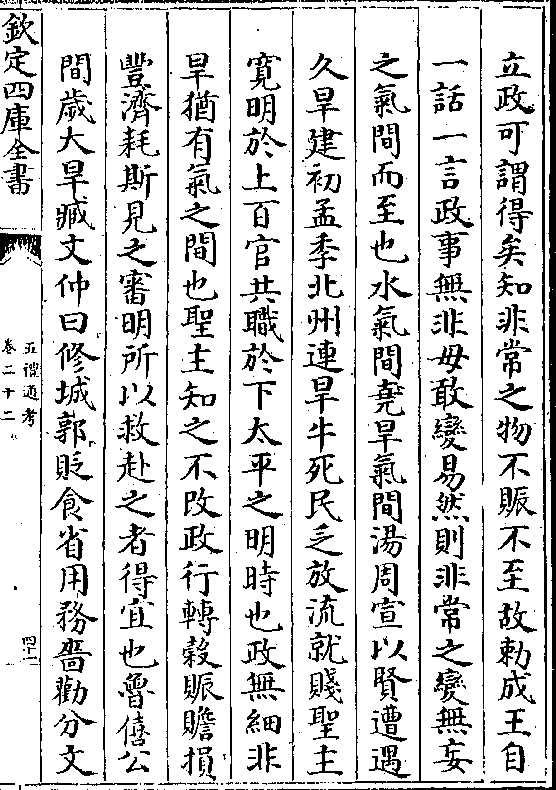 立政可謂得矣知非常之物不賑不至故勅成王自
一話一言政事無非毋敢變易然則非常之變無妄
之氣間而至也水氣間堯旱氣間湯周宣以賢遭遇
久旱建初孟季北州連旱牛死民乏放流就賤聖主
寛明於上百官共職於下太平之明時也政無細非
旱猶有氣之間也聖主知之不改政行轉榖賑贍損
豐濟耗斯見之審明所以救赴之者得宜也魯僖公
間歲大旱臧文仲曰修城郭貶食省用務嗇勸分文
欽定四庫全書
五禮通考
卷二十二
四十一